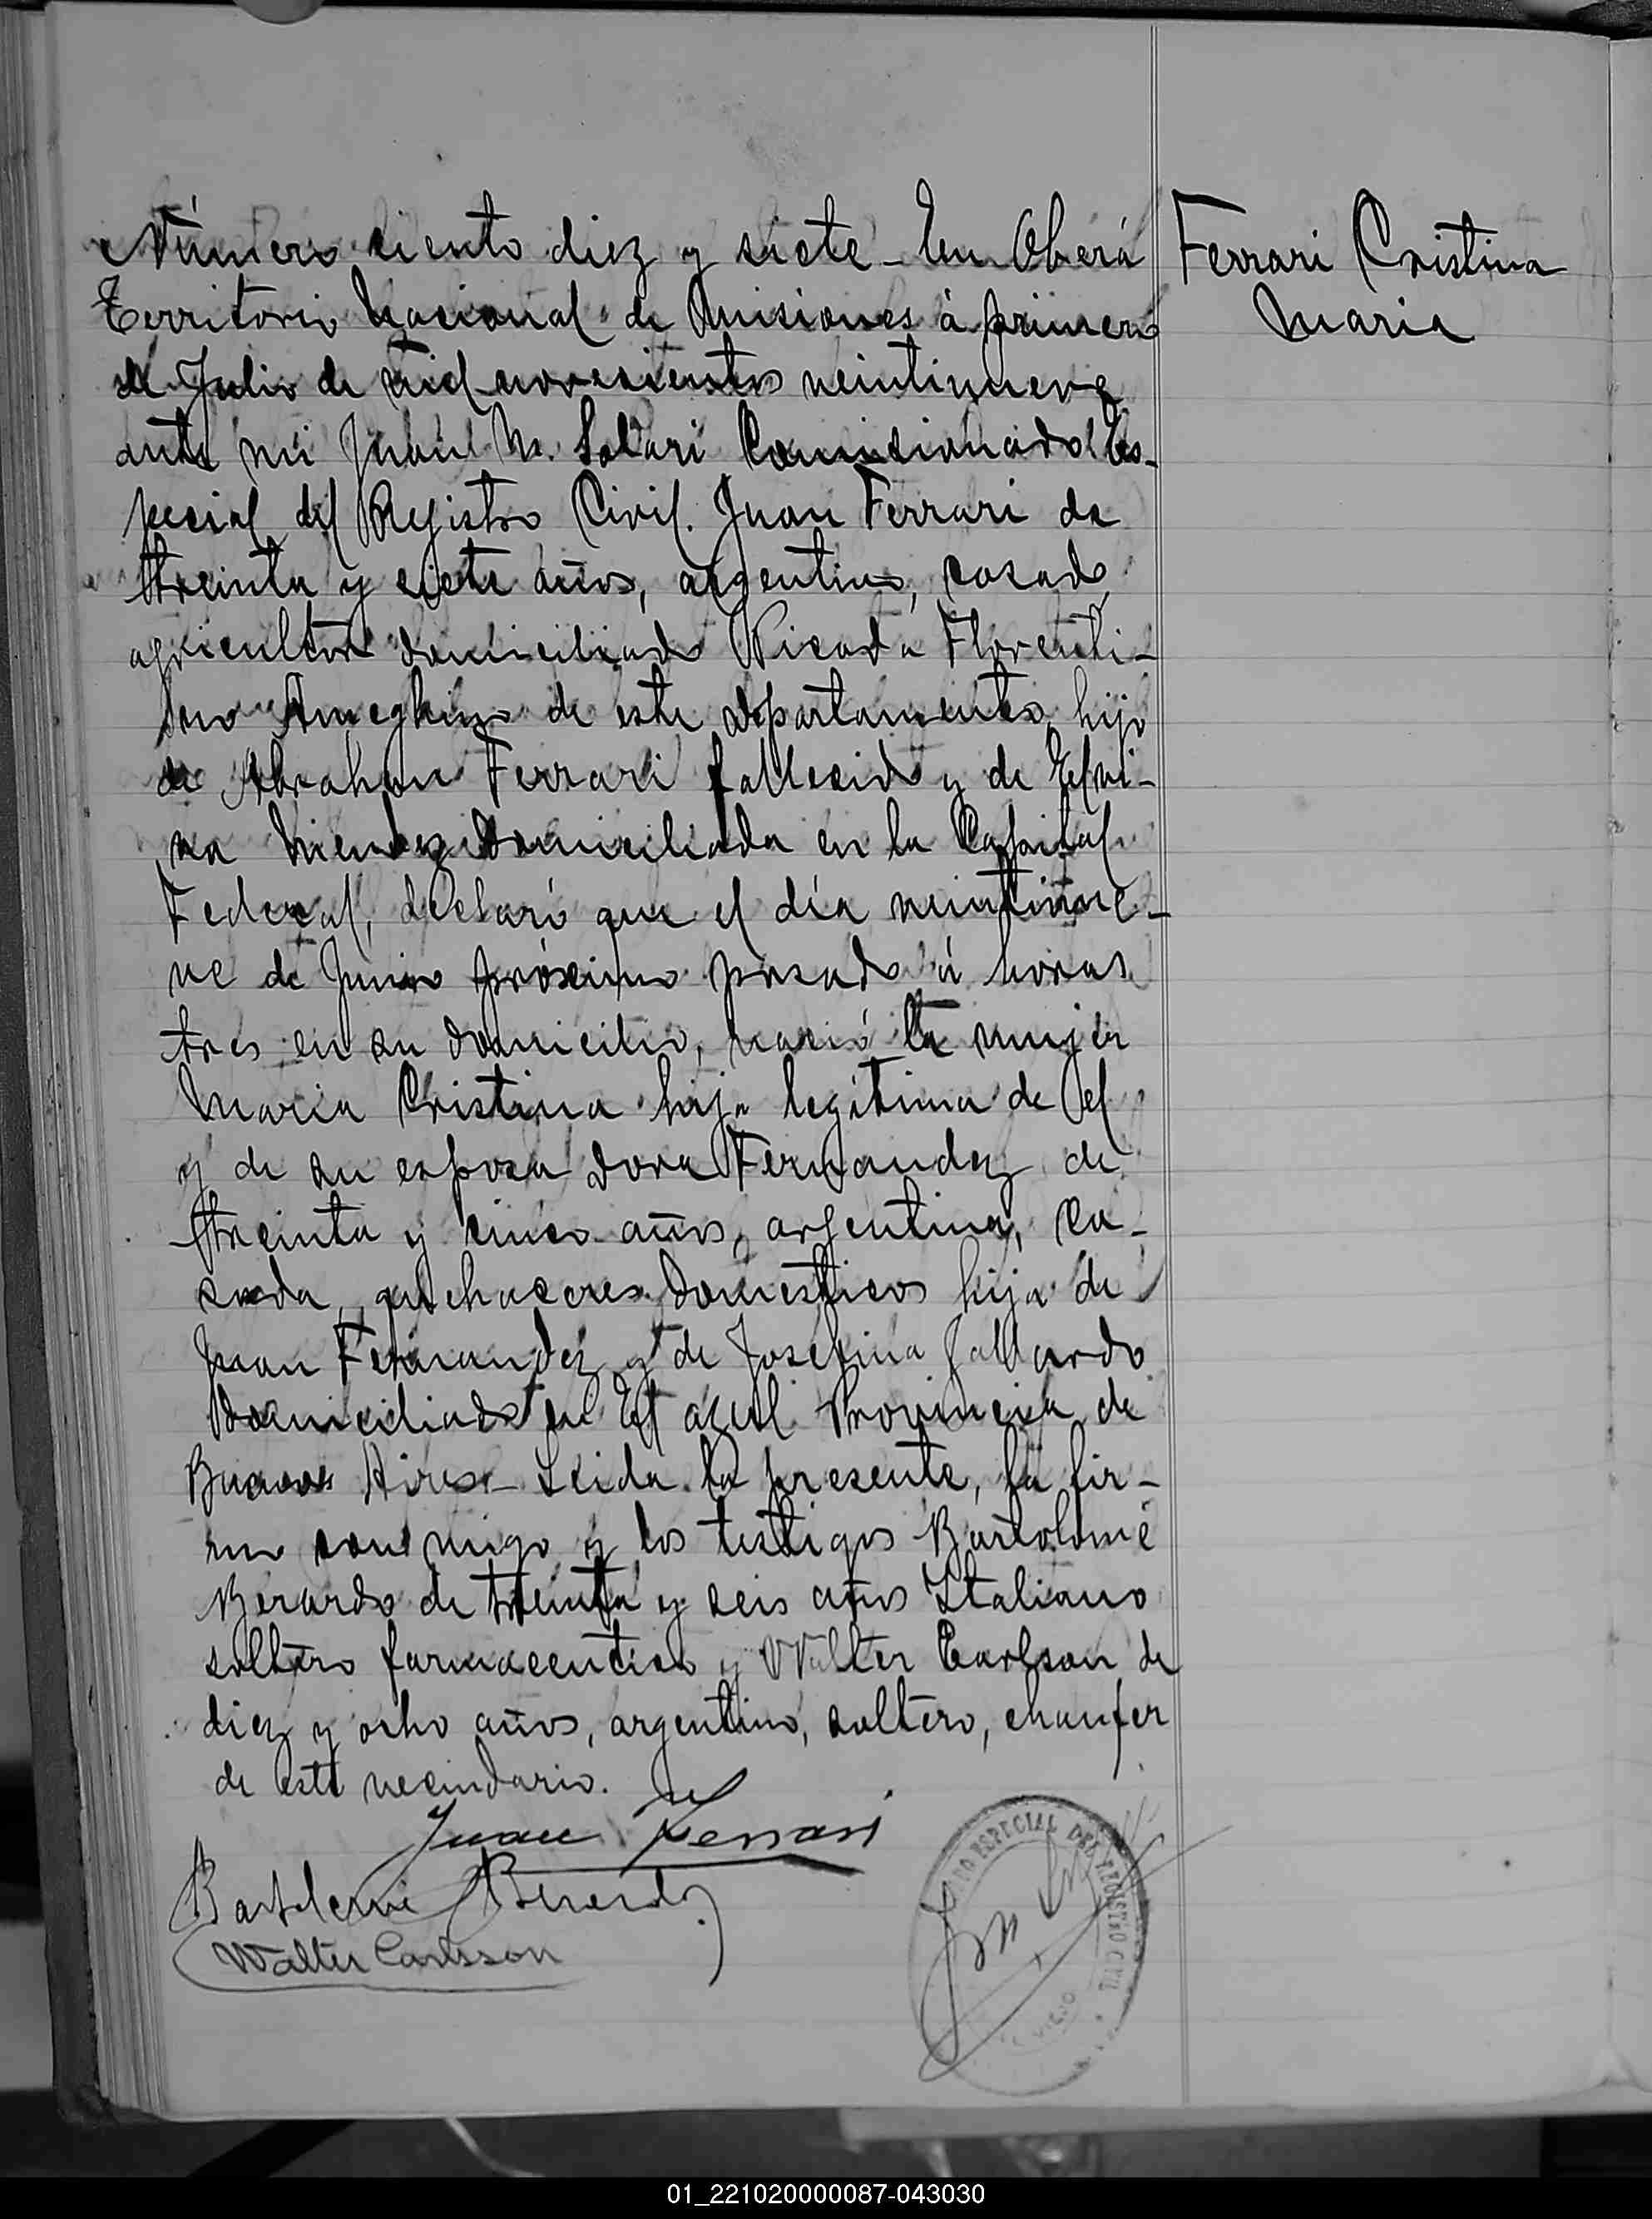 Número ciento diez y siete - En Oberá
Ferrari Cristina
Maria
Territorio Nacional de Misiones á primero
de Julio de mil novecientos veintinueve
ante mi Juan M. Solari Comisionado Es-
pecial del Registro Civil. Juan Ferrari de
treinta y siete años, argentino, casado,
agricultor domiciliado Picada Florenti-
no Ameghino de este departamento, hijo
de Abrahan Ferrari fallecido y de Elvi-
ra Mendez domiciliada en la Capital
Federal, declaró que el día veintinue-
ve de Junio próximo pasado á horas
tres en su domicilio, nació la mujer
Maria Cristina hija legitima de el
y de su esposa Dora Fernandez de
treinta y cinco años, argentina, ca-
sada, quehaceres domésticos hija de
Juan Fernandez y de Josefina Gallardo
domiciliado en El azul Provincia de
Buenos Aires - Leida la presente, la fir-
mo conmigo y los testigos Bartolomé
Berardo de treinta y seis años Italiano
soltero farmaceutico y Walter Carlsson de
diez y ocho años, argentino, soltero, chaufer
de este vecindario.
Juan Ferrari
Bartolomé Berardo
Walter Carlsson
ESPECIAL DEL REGISTRO CIVIL
01_221020000087-043030